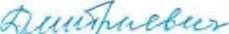 Дмитриевич